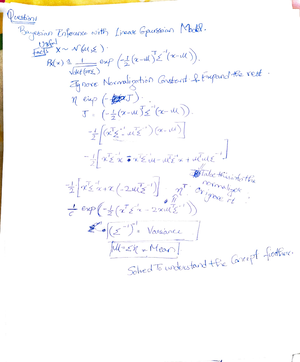 Question:
Bayesian Inference with Linear Gaussian Model.
Useful Facts x ~ N(μ, Σ).
exp (-½(x-μ)ᵀΣ⁻¹(x-μ)),
Ignore Normalization Constant & Expand the rest.
η exp (-J)
J = (½(x-μ)ᵀΣ⁻¹(x-μ)).
-½[(xᵀΣ⁻¹-μᵀΣ⁻¹)(x-μ)]
-½[xᵀΣ⁻¹x - xᵀΣ⁻¹μ - μᵀΣ⁻¹x + μᵀμΣ⁻¹]
Take this into the
normalizer
or ignore it
-½[xᵀΣ⁻¹x + x(-2μᵀΣ⁻¹)] ηᵀ
exp(-½(xᵀΣ⁻¹x - 2xμᵀΣ⁻¹))
(Σ⁻¹)⁻¹ = Variance
μ = Ση = Mean
Solved to understand the Concept further.